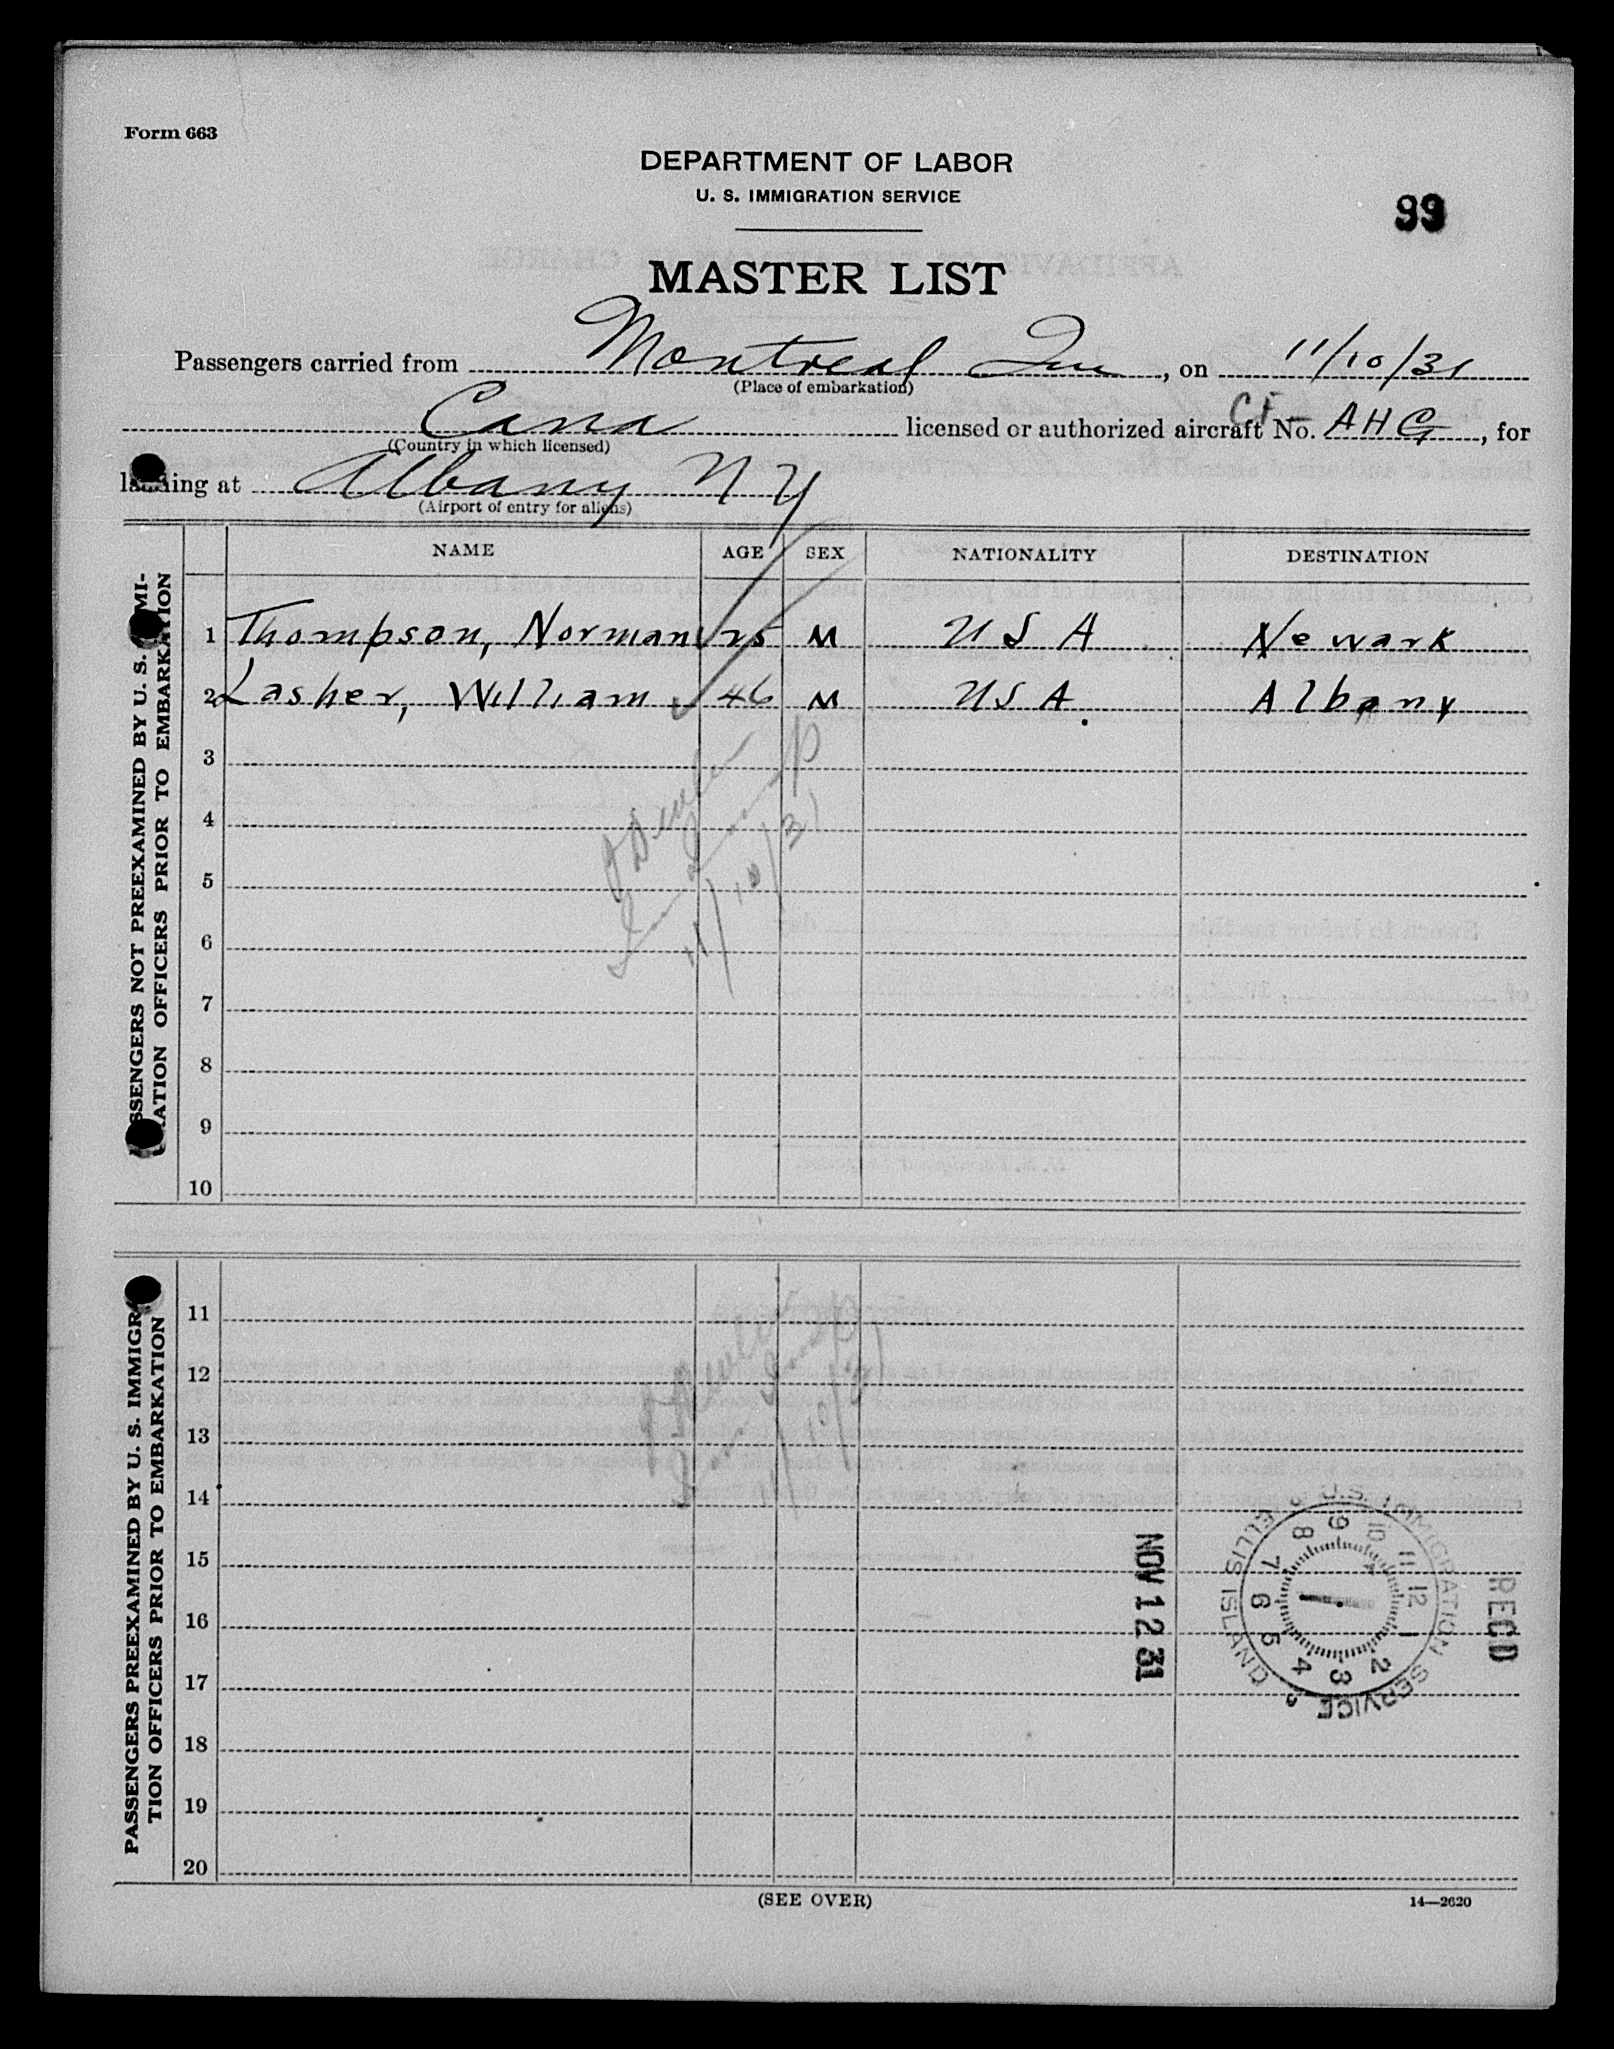 Form 663
DEPARTMENT OF LABOR
U. S. IMMIGRATION SERVICE
99
MASTER LIST
Passengers carried from Montreal Que, on 11/10/31
(Place of embarkation)
Cana licensed or authorized aircraft No. CF- AHG, for
(Country in which licensed)
landing at Albany N Y
(Airport of entry for aliens)
NAME AGE SEX NATIONALITY DESTINATION
PASSENGERS NOT PREEXAMINED BY U. S. IMMI-
GRATION OFFICERS PRIOR TO EMBARKATION
1 Thompson, Norman 25 M U S A Newark
2 Lasher, William 46 M U S A. Albany
3
4
5
6
7
8
9
10
11/10/31
PASSENGERS PREEXAMINED BY U. S. IMMIGRA-
TION OFFICERS PRIOR TO EMBARKATION
11
12
13
14
15
16
17
18
19
20
11/10/31
NOV 12 31
U.S. IMMIGRATION SERVICE
ELLIS ISLAND
1 2 3 4 5 6 7 8 9 10 11 12
RECD
(SEE OVER)
14—2620